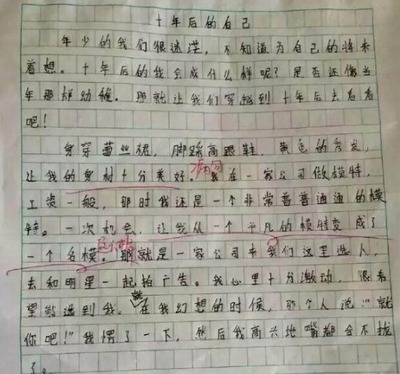 十年后的自己
年少的我们很迷茫，不知道为自己的将来
着想。十年后的我会成什么样呢？是否还像当
年那样幼稚。那就让我们穿越到十年后去看看
吧！
身穿蕾丝裙，脚踩高跟鞋，黄色的卷发，
让我的身材十分美好。我在一家公司做模特，
工资一般，那时我还是一个非常普普通通的模
特。一次机会，让我从一个平凡的模特变成了
一个名模。那就是一家公司来我们这里选人，
去和明星一起拍广告。我心里十分激动，很希
望能选到我。在我幻想的时候，那个人说："就
你吧！"我愣了一下，然后我高兴地嘴都合不拢
了。